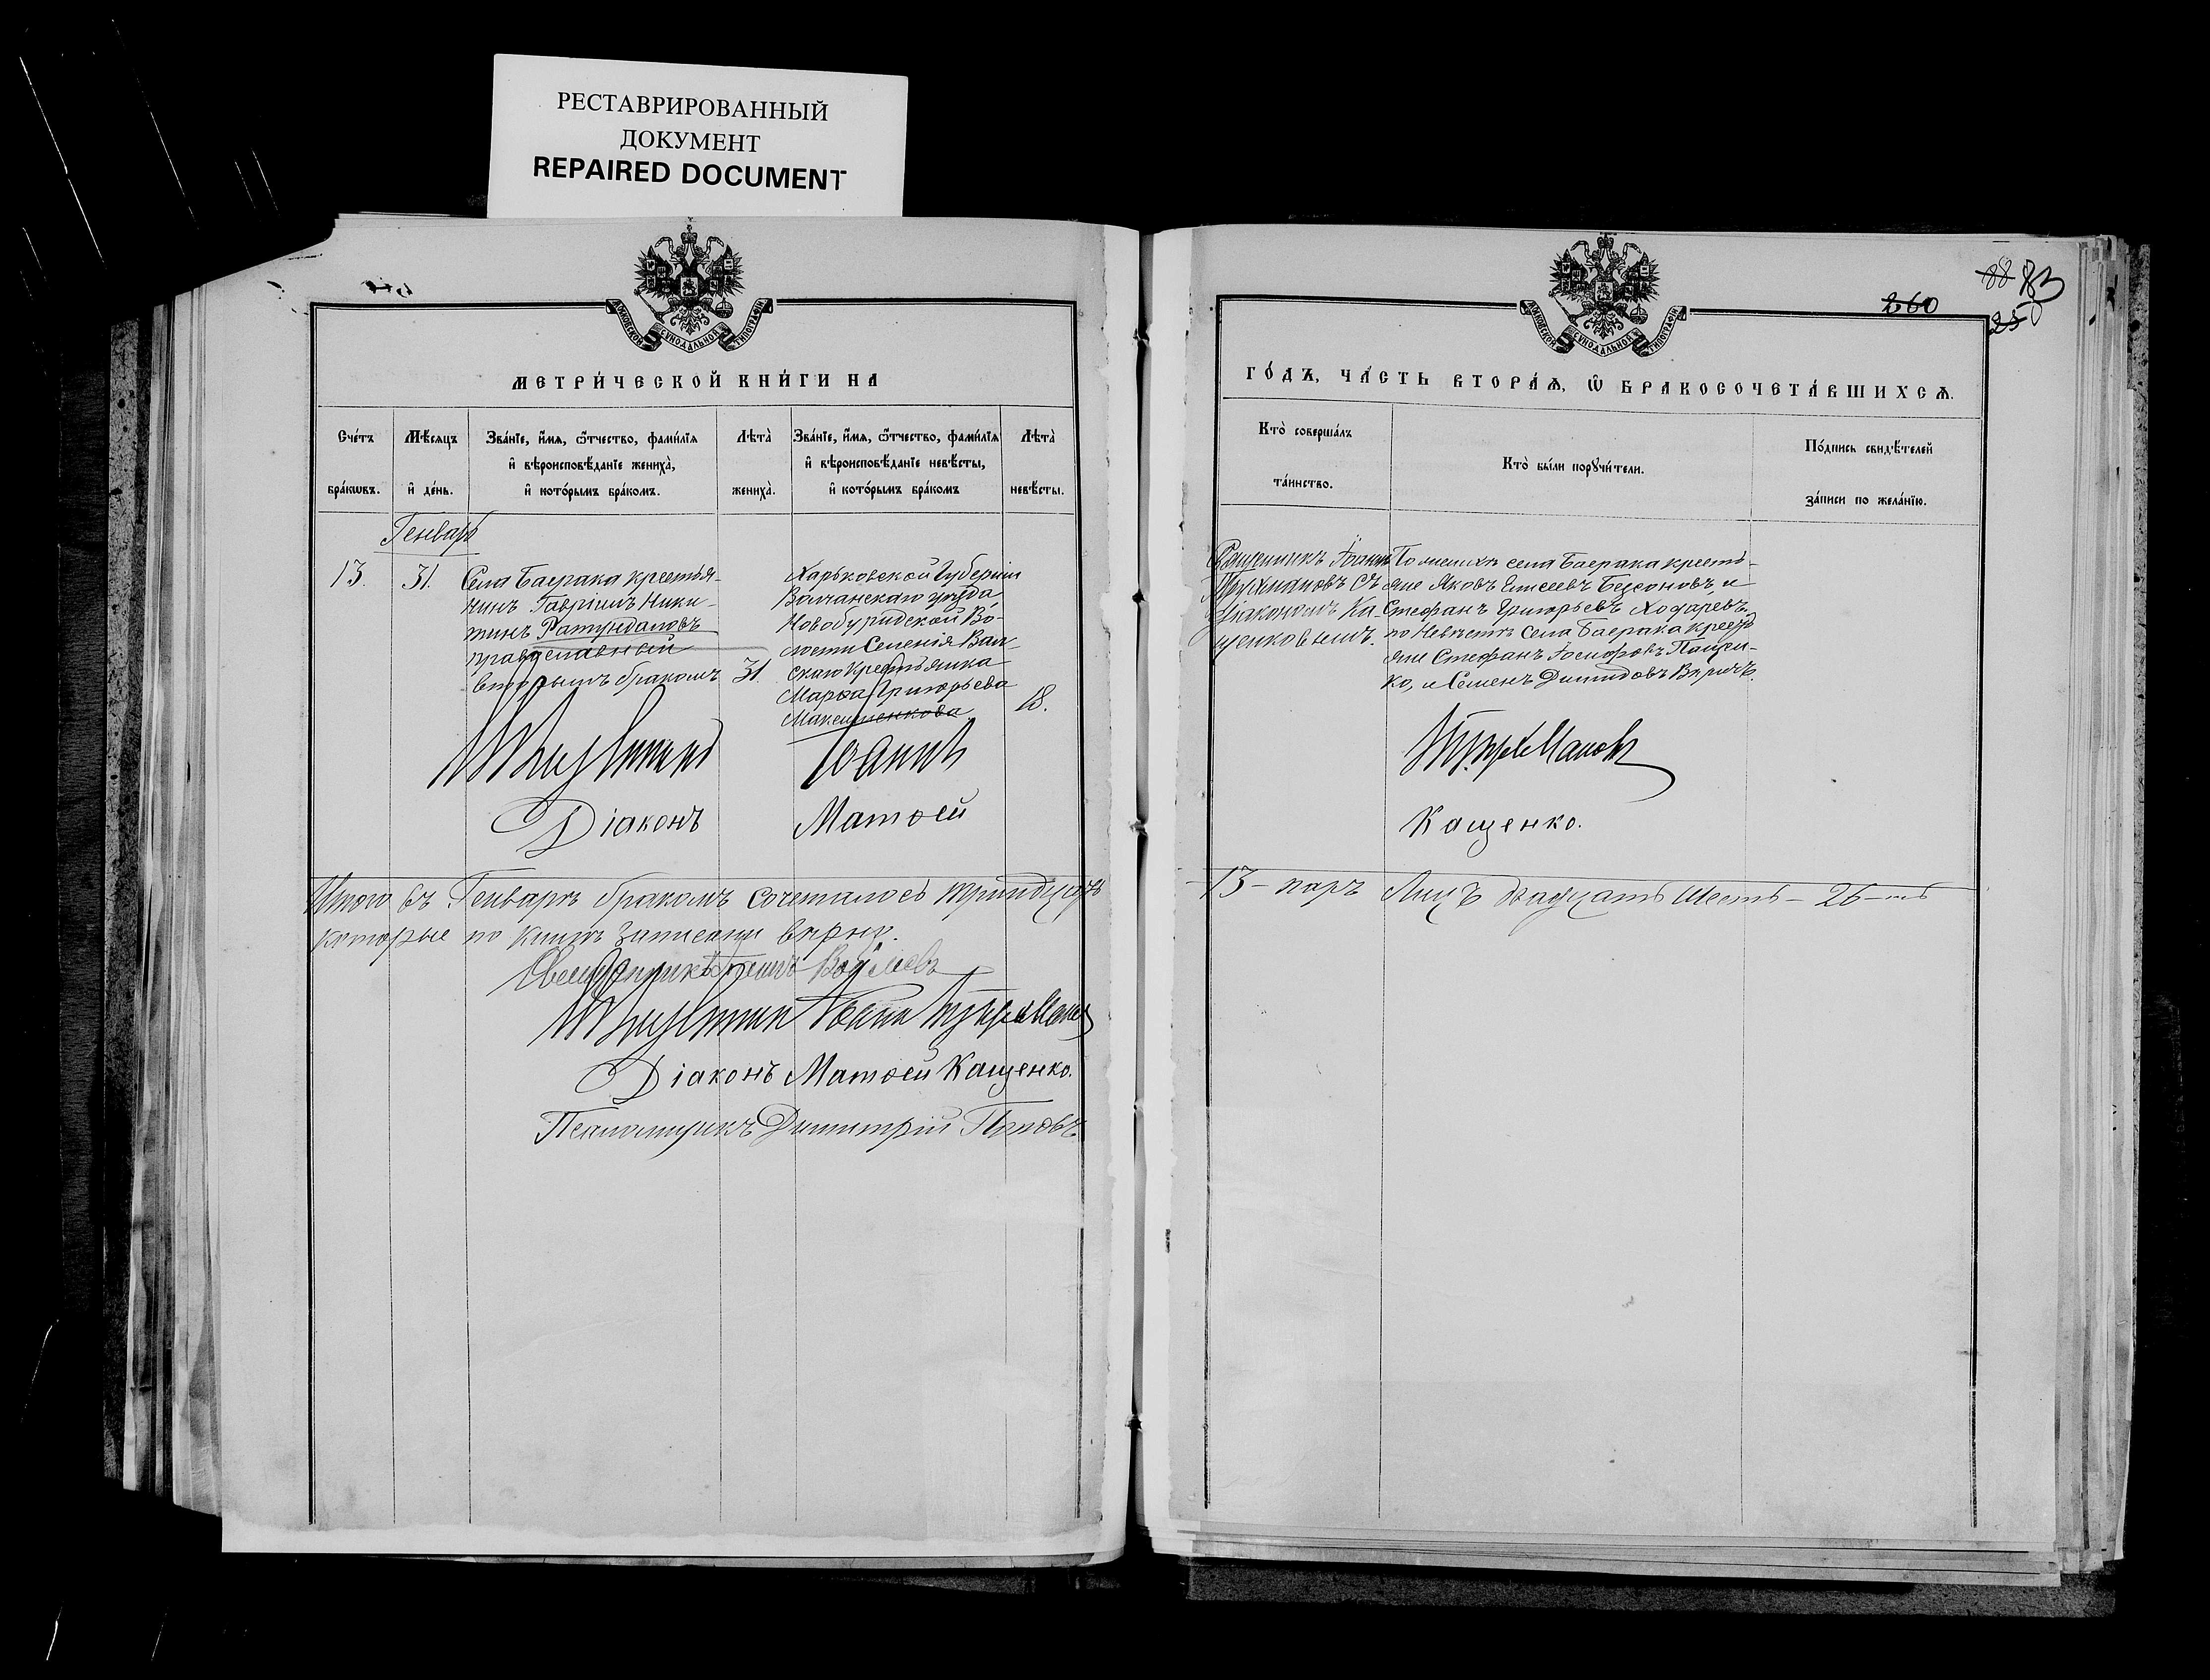 РЕСТАВРИРОВАННЫЙ
ДОКУМЕНТ
REPAIRED DOCUMENT
МОСКОВСКОЙ СѴНОДАЛЬНОЙ ТИПОГРАФІИ
МЕТРИ́ЧЕСКОЙ КНИ́ГИ НА
Сче́тъ бра́кѡвъ.
Мѣ́сяцъ и҆ де́нь.
Зва́нїе, и҆́мѧ, ѻ҆́тчество, фами́лїѧ
и҆ вѣроисповѣ́данїе жениха̀,
и҆ кото́рымъ бра́комъ.
Лѣта̀ жениха̀.
Зва́нїе, и҆́мѧ, ѻ҆́тчество, фами́лїѧ
и҆ вѣроисповѣ́данїе невѣ́сты,
и҆ кото́рымъ бра́комъ
Лѣта̀ невѣ́сты.
Генварь
13.
31.
Села Баерака крестья-
нинъ Гавріилъ Ники-
тинъ Ратундаловъ
православный
вторымъ бракомъ
31
Харьковской Губерніи
Волчанскаго уѣзда
Новобуридской Во-
лости Селенія
скаго крестьянка
Марѳа Григорьева
Максименкова
18.
Священникъ Іоаннъ
Діаконъ Матѳей
Итого въ Генварѣ бракомъ сочеталось тринадцать
которые по книгѣ записаны вѣрно.
Священникъ
Священникъ Іоаннъ Трухмановъ
Діаконъ Матѳей Кащенко.
Псаломщикъ Димитрій Поповъ
88 83
260
250
МОСКОВСКОЙ СѴНОДАЛЬНОЙ ТИПОГРАФІИ
ГО́ДЪ, ЧА́СТЬ ВТОРА́Ѧ, Ѡ҆ БРАКОСОЧЕТА́ВШИХСѦ.
Кто̀ соверша́лъ та́инство.
Кто̀ бы́ли порꙋчи́тели.
По́дпись свидѣ́телей за́писи по жела́нїю.
Священникъ Іоаннъ
Трухмановъ съ
Діакономъ Ка-
щенковымъ.
По женихѣ села Баерака кресть-
яне Яковъ Елисеевъ Безсоновъ, и
Стефанъ Григорьевъ Ходаревъ,
по Невѣстѣ села Баерака кресть
яне Стефанъ Іосифовъ Пащен-
ко, и Семенъ Димидовъ
Трухмановъ
Кащенко.
13 - паръ Лицъ двадцать шесть - 26 -ть